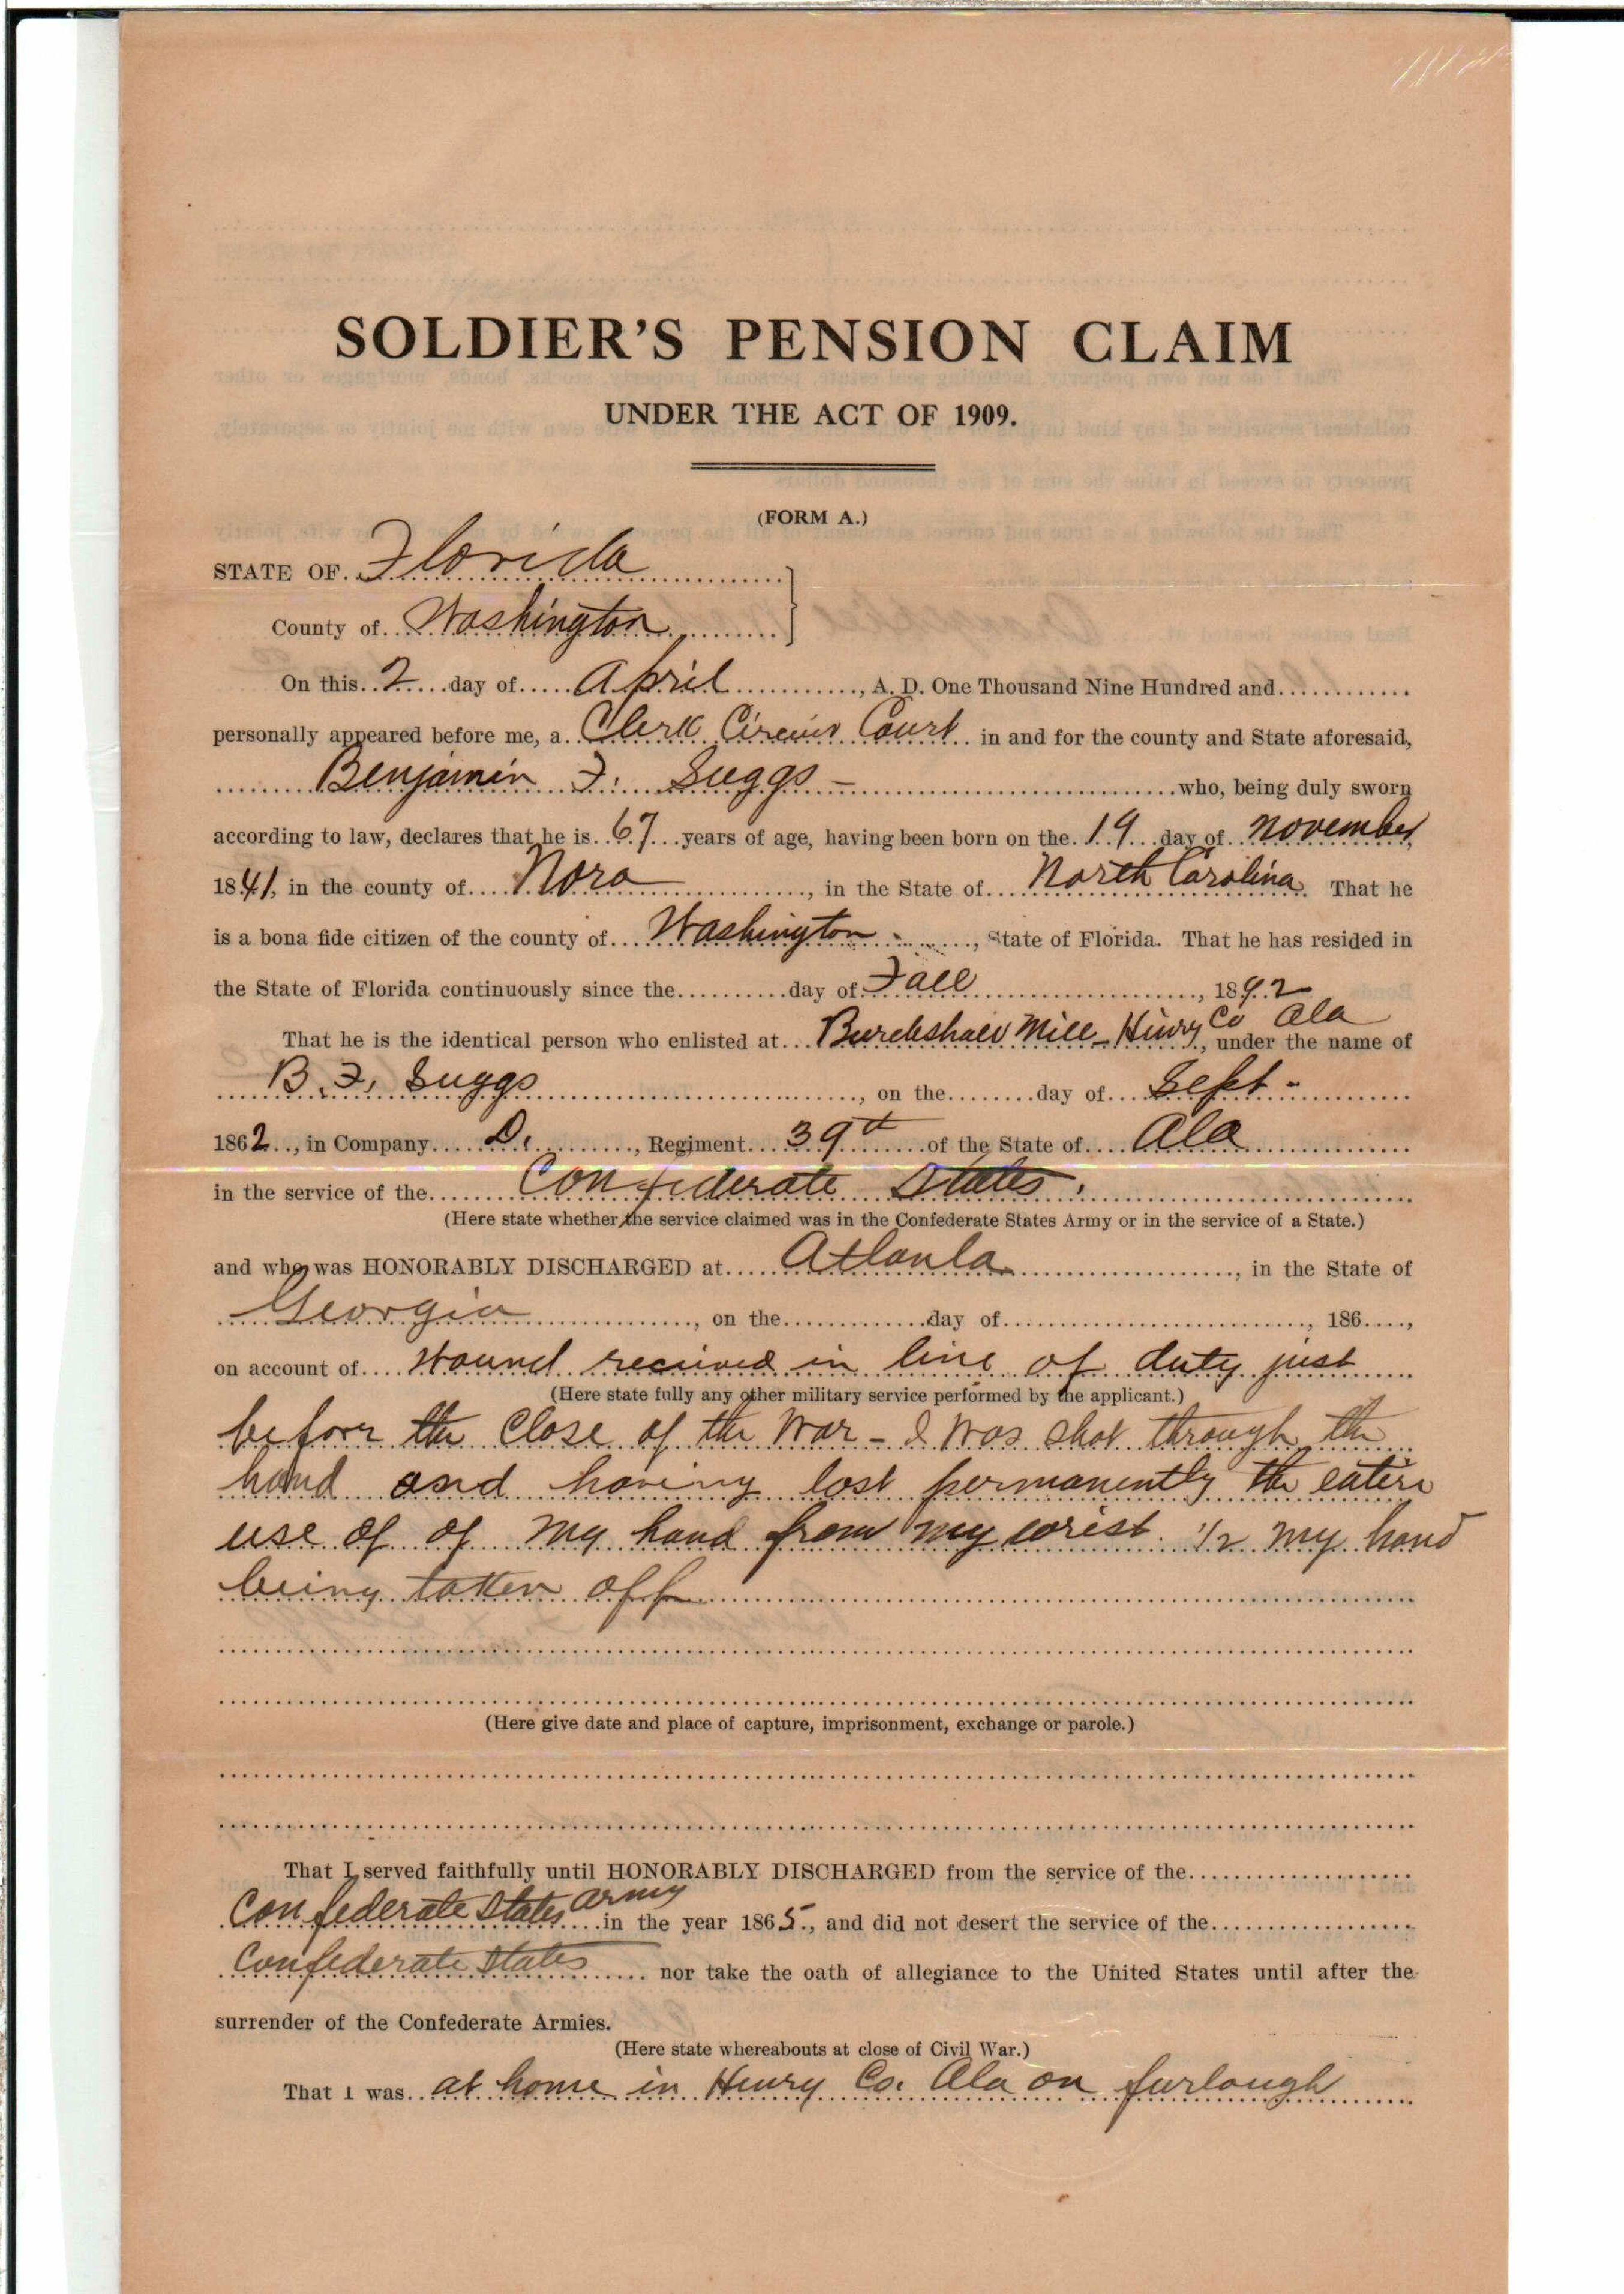 SOLDIER'S PENSION CLAIM
UNDER THE ACT OF 1909.
(FORM A.)
STATE OF Florida
County of Washington
On this 2 day of April, A. D. One Thousand Nine Hundred and
personally appeared before me, a Clerk Circuit Court in and for the county and State aforesaid,
Benjamin F. Suggs - who, being duly sworn
according to law, declares that he is 67 years of age, having been born on the 19 day of November
1841, in the county of Nora, in the State of North Carolina. That he
is a bona fide citizen of the county of Washington, State of Florida. That he has resided in
the State of Florida continuously since the day of Fall, 1892
That he is the identical person who enlisted at Mill - Henry Co Ala, under the name of
B. F. Suggs, on the day of Sept -
1862, in Company D., Regiment 39th of the State of Ala
in the service of the Confederate States.
(Here state whether the service claimed was in the Confederate States Army or in the service of a State.)
and who was HONORABLY DISCHARGED at Atlanta, in the State of
Georgia, on the day of, 186,
on account of Wound received in line of duty just
(Here state fully any other military service performed by the applicant.)
before the Close of the War - I was shot through the
hand and having lost permanently the entire
use of of my hand from my wrist. 1/2 my hand
being taken off
(Here give date and place of capture, imprisonment, exchange or parole.)
That I served faithfully until HONORABLY DISCHARGED from the service of the
Confederate States army in the year 1865, and did not desert the service of the
Confederate States nor take the oath of allegiance to the United States until after the
surrender of the Confederate Armies.
(Here state whereabouts at close of Civil War.)
That I was at home in Henry Co. Ala on furlough